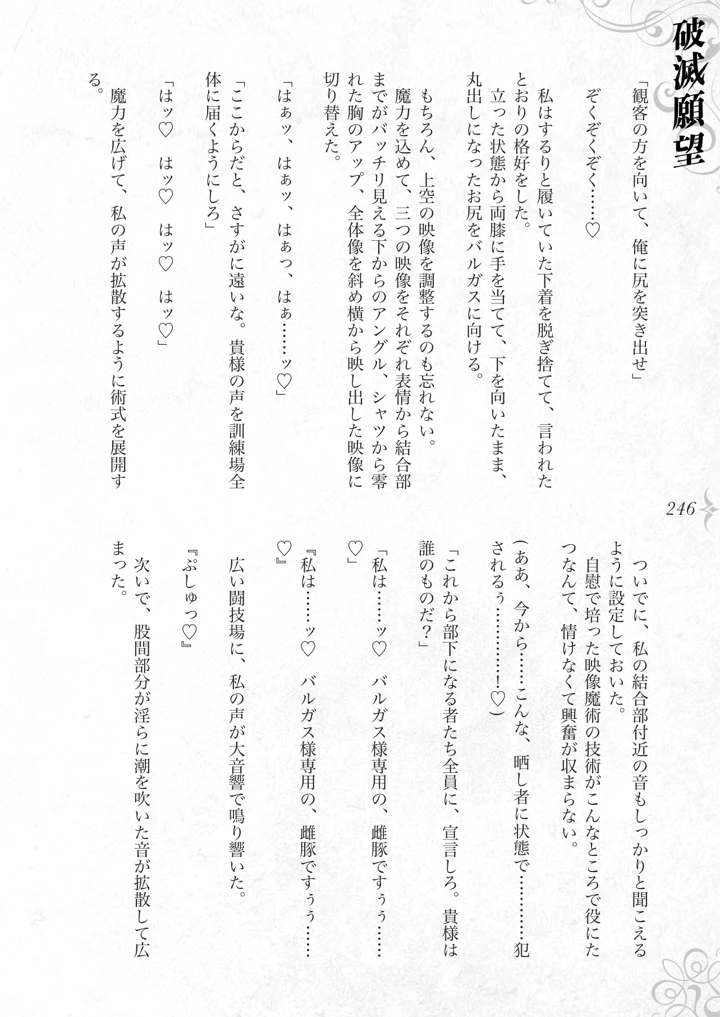 破滅願望
「観客の方を向いて、俺に尻を突き出せ」
ぞくぞくぞく……♡
私はするりと履いていた下着を脱ぎ捨てて、言われた
とおりの格好をした。
立った状態から両膝に手を当てて、下を向いたまま、
丸出しになったお尻をバルガスに向ける。
もちろん、上空の映像を調整するのも忘れない。
魔力を込めて、三つの映像をそれぞれ表情から結合部
までがバッチリ見える下からのアングル、シャツから零
れた胸のアップ、全体像を斜め横から映し出した映像に
切り替えた。
「はぁッ、はぁッ、はぁっ、はぁ……ッ♡」
「ここからだと、さすがに遠いな。貴様の声を訓練場全
体に届くようにしろ」
「はッ♡　はッ♡　はッ♡　はッ♡」
魔力を広げて、私の声が拡散するように術式を展開す
る。
246
ついでに、私の結合部付近の音もしっかりと聞こえる
ように設定しておいた。
自慰で培った映像魔術の技術がこんなところで役にた
つなんて、情けなくて興奮が収まらない。
(ああ、今から……こんな、晒し者に状態で…………犯
されるぅ…………！♡)
「これから部下になる者たち全員に、宣言しろ。貴様は
誰のものだ？」
「私は……ッ♡　バルガス様専用の、雌豚ですぅぅ……
♡」
『私は……ッ♡　バルガス様専用の、雌豚ですぅぅ……
♡』
広い闘技場に、私の声が大音響で鳴り響いた。
『ぷしゅっ♡』
次いで、股間部分が淫らに潮を吹いた音が拡散して広
まった。